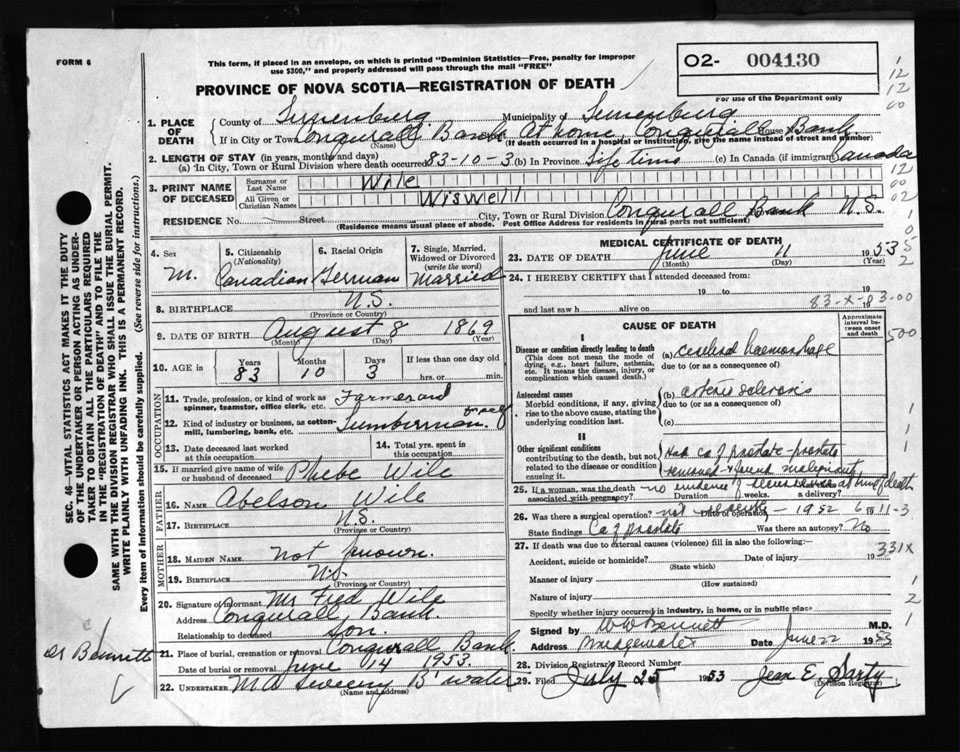 FORM 6
This form, if placed in an envelope, on which is printed "Dominion Statistics—Free, penalty for improper
use $300," and properly addressed will pass through the mail "FREE"
O2- 004130
For use of the Department only
PROVINCE OF NOVA SCOTIA—REGISTRATION OF DEATH
1. PLACE OF DEATH
County of Lunenburg Municipality of Lunenburg
If in City or Town Conquerall Bank At home, Conquerall Bank
(Name) (If death occurred in a hospital or institution, give the name instead of street and number)
2. LENGTH OF STAY (in years, months and days)
(a) In City, Town or Rural Division where death occurred 83-10-3 (b) In Province Life time (c) In Canada (if immigrant) Canada
3. PRINT NAME OF DECEASED
Surname or Last Name Wile
All Given or Christian Names Wiswell
RESIDENCE No. Street City, Town or Rural Division Conquerall Bank N.S.
(Residence means usual place of abode. Post Office Address for residents in rural parts not sufficient)
4. Sex M.
5. Citizenship (Nationality) Canadian
6. Racial Origin German
7. Single, Married, Widowed or Divorced (write the word) Married
8. BIRTHPLACE N.S.
(Province or Country)
9. DATE OF BIRTH August 8 1869
(Month) (Day) (Year)
10. AGE IS Years 83 Months 10 Days 3 If less than one day old
hrs. or min.
OCCUPATION
11. Trade, profession, or kind of work as spinner, teamster, office clerk, etc. Farmer and
12. Kind of industry or business, as cotton-mill, lumbering, bank, etc. Lumberman.
13. Date deceased last worked at this occupation
14. Total yrs. spent in this occupation
15. If married give name of wife or husband of deceased Phebe Wile
FATHER
16. NAME Abelson Wile
17. BIRTHPLACE N.S.
(Province or Country)
MOTHER
18. MAIDEN NAME Not known.
19. BIRTHPLACE N.S.
(Province or Country)
20. Signature of informant Mr Fred Wile
Address Conquerall Bank.
Relationship to deceased Son.
21. Place of burial, cremation or removal Conquerall Bank.
Date of burial or removal June 14 1953.
22. UNDERTAKER M A Sweeny B'water
(Name and address)
MEDICAL CERTIFICATE OF DEATH
23. DATE OF DEATH June 11 1953
(Month) (Day) (Year)
24. I HEREBY CERTIFY that I attended deceased from:
19 to 19
and last saw h alive on 19
83-X-83-00
CAUSE OF DEATH
Approximate interval between onset and death
I
Disease or condition directly leading to death
(This does not mean the mode of dying, e.g., heart failure, asthenia, etc. It means the disease, injury, or complication which caused death.)
(a) cerebral haemorrhage
due to (or as a consequence of)
Antecedent causes
Morbid conditions, if any, giving rise to the above cause, stating the underlying condition last.
(b) arterio sclerosis
due to (or as a consequence of)
(c)
II
Other significant conditions
contributing to the death, but not related to the disease or condition causing it.
Had ca of prostate - prostate
removed & found malignant,
no evidence of at time of death
25. If a woman, was the death associated with pregnancy? Duration weeks. a delivery?
26. Was there a surgical operation? not Date of operation 1952
State findings Ca of prostate Was there an autopsy? No
27. If death was due to external causes (violence) fill in also the following:—
Accident, suicide or homicide? Date of injury 19
(State which)
Manner of injury
(How sustained)
Nature of injury
Specify whether injury occurred in industry, in home, or in public place
331X
Signed by W W Bennett M.D.
Address Bridgewater Date June 22 1953
28. Division Registrar's Record Number
29. Filed July 25 1953 Jean E. Sarty
(Division Registrar)
SEC. 46—VITAL STATISTICS ACT MAKES IT THE DUTY
OF THE UNDERTAKER OR PERSON ACTING AS UNDER-
TAKER TO OBTAIN ALL THE PARTICULARS REQUIRED
IN THE "REGISTRATION OF DEATH" AND TO FILE THE
SAME WITH THE DIVISION REGISTRAR WHO SHALL ISSUE THE BURIAL PERMIT.
WRITE PLAINLY WITH UNFADING INK. THIS IS A PERMANENT RECORD.
Every item of Information should be carefully supplied. (See reverse side for instructions.)
Dr Bennett